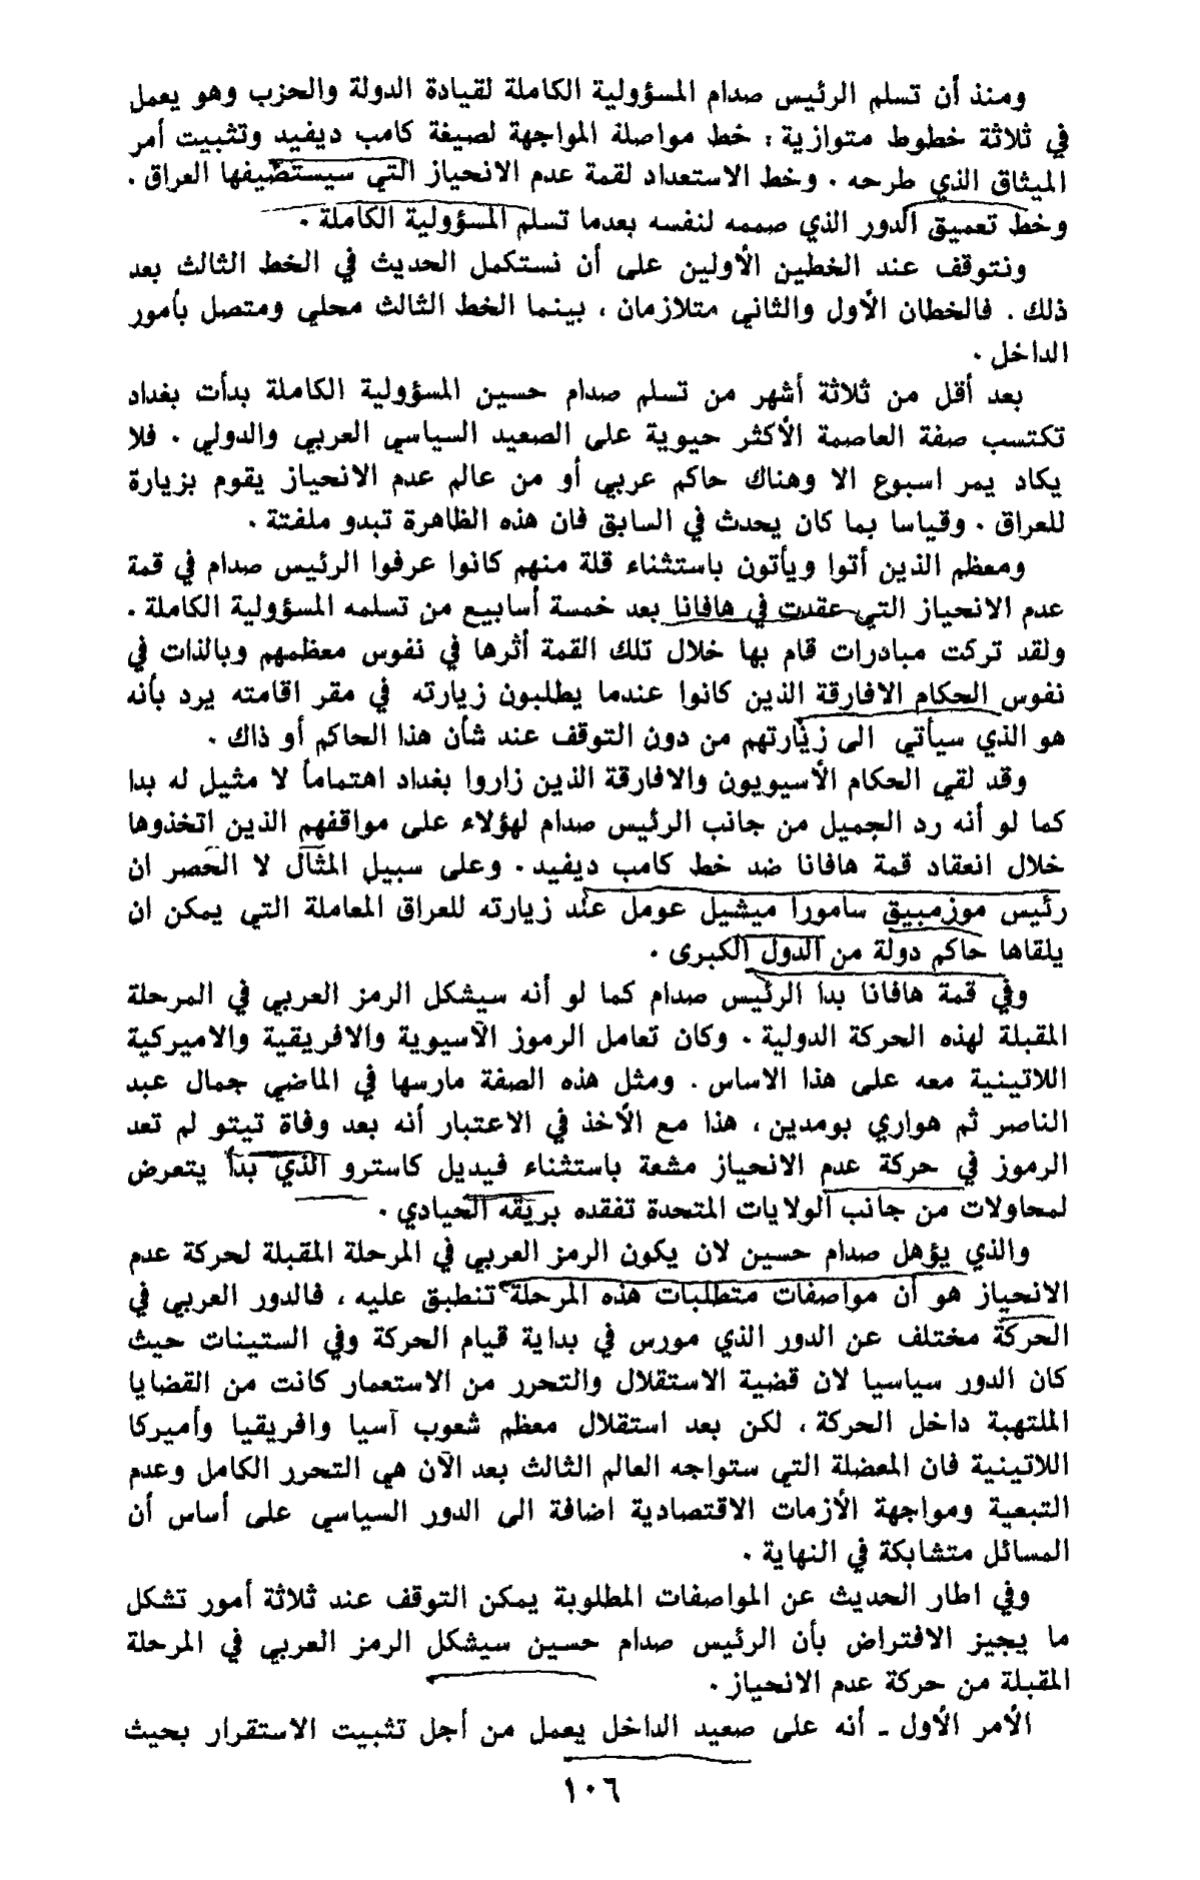 ومنذ أن تسلم الرئيس صدام المسؤولية الكاملة لقيادة الدولة والحزب وهو يعمل
في ثلاثة خطوط متوازية : خط مواصلة المواجهة لصيغة كامب ديفيد وتثبيت أمر
الميثاق الذي طرحه . وخط الاستعداد لقمة عدم الانحياز التي سيستضيفها العراق .
وخط تعميق الدور الذي صممه لنفسه بعدما تسلم المسؤولية الكاملة .
ونتوقف عند الخطين الأولين على أن نستكمل الحديث في الخط الثالث بعد
ذلك . فالخطان الأول والثاني متلازمان ، بينما الخط الثالث محلي ومتصل بأمور
الداخل .
بعد أقل من ثلاثة أشهر من تسلم صدام حسين المسؤولية الكاملة بدأت بغداد
تكتسب صفة العاصمة الأكثر حيوية على الصعيد السياسي العربي والدولي . فلا
يكاد يمر اسبوع الا وهناك حاكم عربي أو من عالم عدم الانحياز يقوم بزيارة
للعراق . وقياسا بما كان يحدث في السابق فان هذه الظاهرة تبدو ملفتة .
ومعظم الذين أتوا ويأتون باستثناء قلة منهم كانوا عرفوا الرئيس صدام في قمة
عدم الانحياز التي عقدت في هافانا بعد خمسة أسابيع من تسلمه المسؤولية الكاملة .
ولقد تركت مبادرات قام بها خلال تلك القمة أثرها في نفوس معظمهم وبالذات في
نفوس الحكام الافارقة الذين كانوا عندما يطلبون زيارته في مقر اقامته يرد بأنه
هو الذي سيأتي الى زيارتهم من دون التوقف عند شأن هذا الحاكم أو ذاك .
وقد لقي الحكام الأسيويون والافارقة الذين زاروا بغداد اهتماماً لا مثيل له بدا
كما لو أنه رد الجميل من جانب الرئيس صدام لهؤلاء على مواقفهم الذين اتخذوها
خلال انعقاد قمة هافانا ضد خط كامب ديفيد . وعلى سبيل المثال لا الحصر ان
رئيس موزمبيق سامورا ميشيل عومل عند زيارته للعراق المعاملة التي يمكن ان
يلقاها حاكم دولة من الدول الكبرى .
وفي قمة هافانا بدا الرئيس صدام كما لو أنه سيشكل الرمز العربي في المرحلة
المقبلة لهذه الحركة الدولية . وكان تعامل الرموز الآسيوية والافريقية والاميركية
اللاتينية معه على هذا الاساس . ومثل هذه الصفة مارسها في الماضي جمال عبد
الناصر ثم هواري بومدين ، هذا مع الأخذ في الاعتبار أنه بعد وفاة تيتو لم تعد
الرموز في حركة عدم الانحياز مشعة باستثناء فيديل كاسترو الذي بدأ يتعرض
لمحاولات من جانب الولايات المتحدة تفقده بريقه الحيادي .
والذي يؤهل صدام حسين لان يكون الرمز العربي في المرحلة المقبلة لحركة عدم
الانحياز هو أن مواصفات متطلبات هذه المرحلة تنطبق عليه ، فالدور العربي في
الحركة مختلف عن الدور الذي مورس في بداية قيام الحركة وفي الستينات حيث
كان الدور سياسيا لان قضية الاستقلال والتحرر من الاستعمار كانت من القضايا
الملتهبة داخل الحركة ، لكن بعد استقلال معظم شعوب آسيا وافريقيا وأميركا
اللاتينية فان المعضلة التي ستواجه العالم الثالث بعد الآن هي التحرر الكامل وعدم
التبعية ومواجهة الأزمات الاقتصادية اضافة الى الدور السياسي على أساس أن
المسائل متشابكة في النهاية .
وفي اطار الحديث عن المواصفات المطلوبة يمكن التوقف عند ثلاثة أمور تشكل
ما يجيز الافتراض بأن الرئيس صدام حسين سيشكل الرمز العربي في المرحلة
المقبلة من حركة عدم الانحياز .
الأمر الأول ـ أنه على صعيد الداخل يعمل من أجل تثبيت الاستقرار بحيث
١٠٦